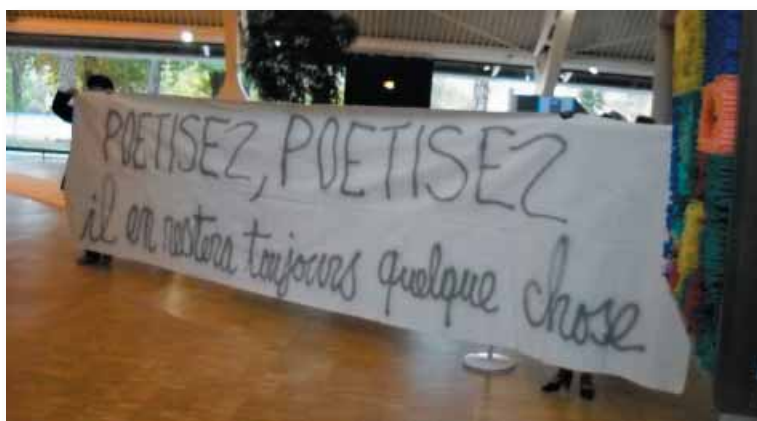 POETISEZ, POETISEZ
il en restera toujours quelque chose